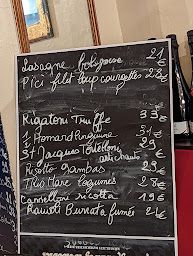 Lasagne bolognese 21€
Pici filet loup courgettes 22€
Rigatoni Truffe 33€
1/2 Homard linguine 31€
St Jacques Tortelloni 29
artichauts €
Risotto Gambas 23€
Thio Mare legumes 28€
Cannelloni ricotta 19€
Ravioli Burrata fumés 21€